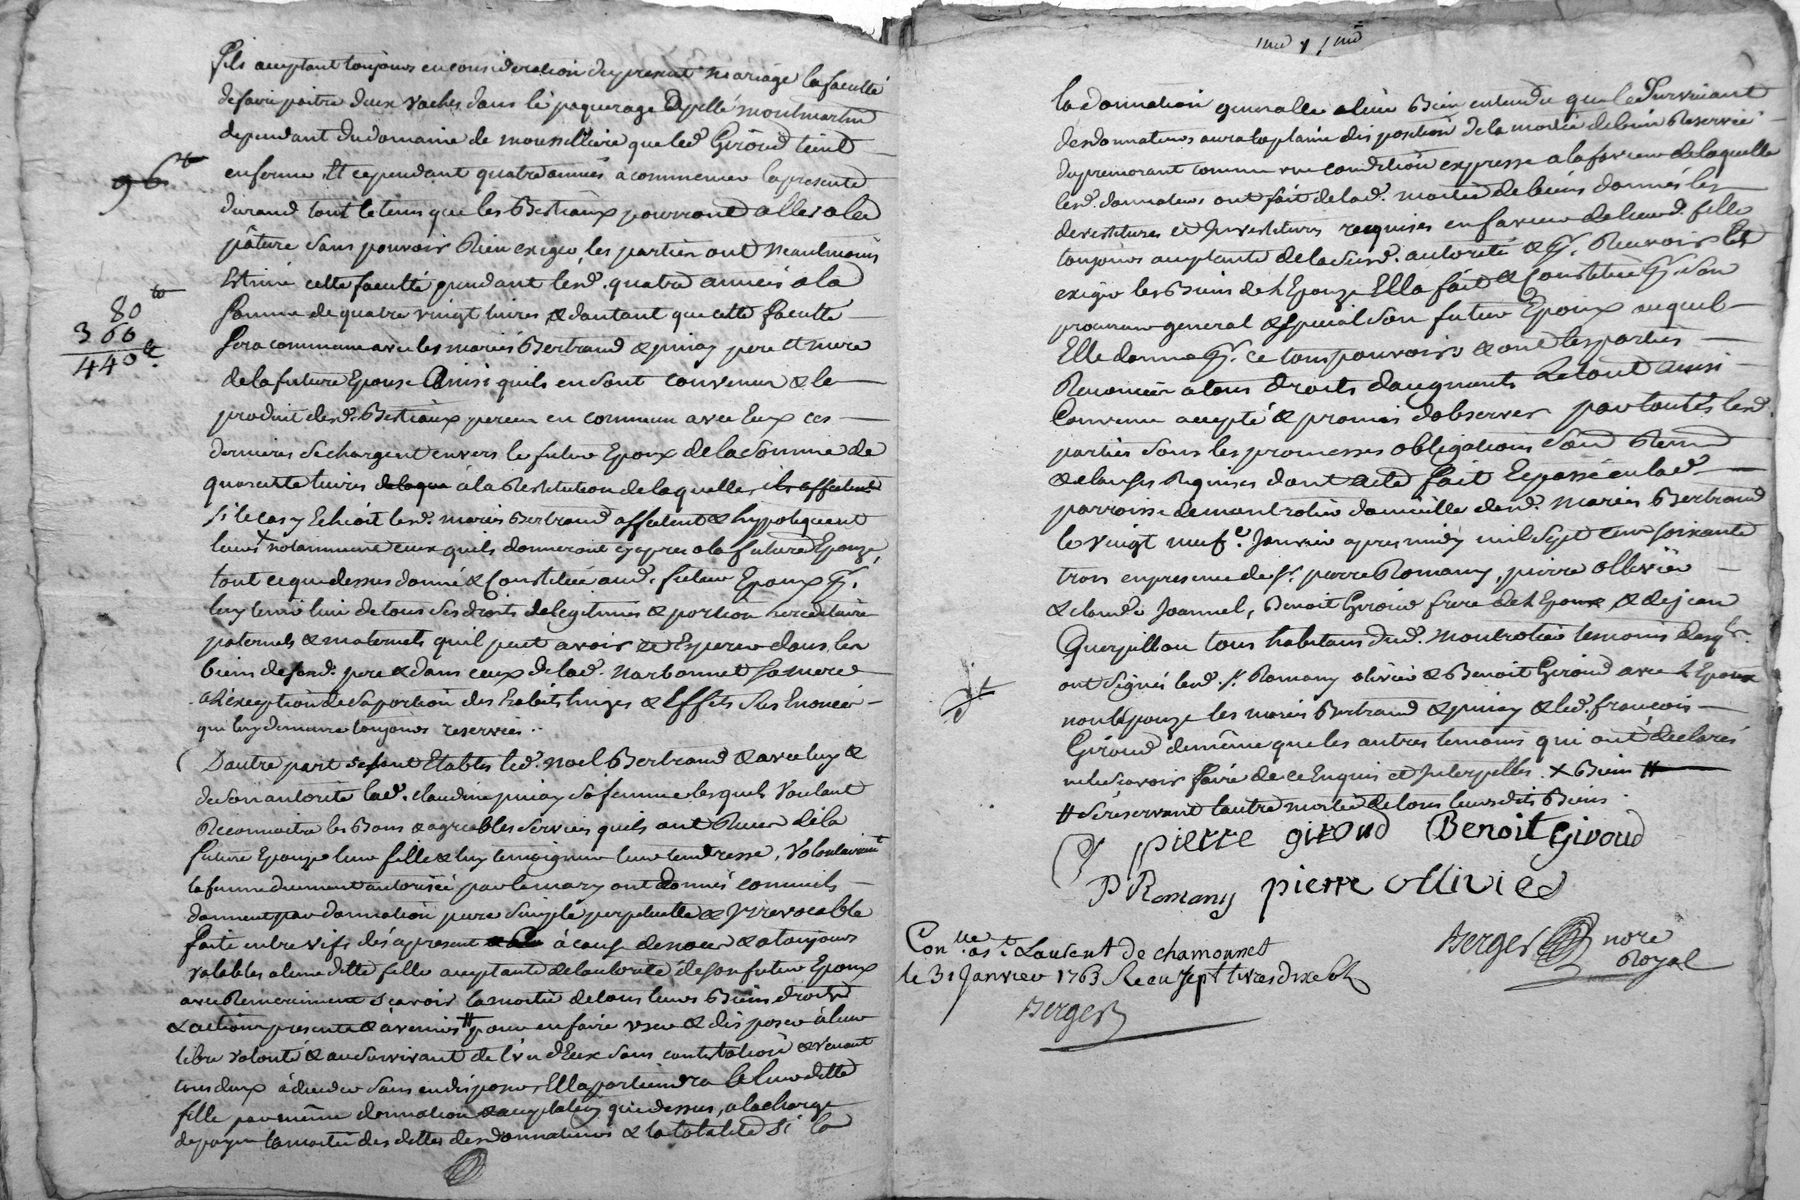 fils acceptant toujours en consideration du present mariage la faculté
de faire paitre deux vaches dans le paquerage apellé montmartin
dependant du domaine de moussilliere que led. Giroud tient
en ferme Et cependant quatre années a commencer la presente
durand tout le tems que les Bestiaux pourront aller a la
pâture sans pouvoir Rien exiger, les parties ont neantmoins
Estimé cette faculté pendant lesd. quatre années a la
somme de quatre vingt livres & d'autant que cette faculté
sera commune avec les mariés Bertrand & pinay pere et mere
de la future Epouse Ainsi quils en sont convenus & le
produit desd. Bestiaux perceu en commun avec Eux ces
derniers se chargent envers le futur Epoux de la somme de
quarante livres de laque à la Restitution de laquelle, ils affectent
si le cas y Echeoit lesd. mariés Bertrand affectent & hypotequent
leurs notamment ceux quils donneront cy apres a la future Epouze,
tout ce que dessus donné & Constitué aud. futur Epoux
luy tenir lieu de tous ses droits de legitimes & portion hereditaire
paternels & maternels quil peut avoir et Esperer dans les
biens de sond. pere & dans ceux de lad. narbonnet sa mere
a l'exception de sa portion des habits linges & Effets
qui luy demeure toujours reservée.
D'autre part se sont Etablis led. noel Bertrand & avec luy &
de son autorité lad. claudine pinay sa femme lesquels Voulant
Reconnoitre les Bons & agreables services quels ont Receu de la
future Epouze leur fille & luy temoigner leur tendresse, Volontairement
la femme duement autorisée par le mary ont donnés comme ils
donnent par donnation pure simple perpetuelle & yrrevocable
faite entre vifs dés a present à cause de noces & a toujours
valables a leurditte fille acceptante de l'autorité de son futur Epoux
avec Remerciment scavoir la moitié de tous leurs Biens, droits
& actions presents & à venirs # pour en faire user & disposer à leur
libre volonté & au survivant de l'un d'Eux sans contestation & venant
tous deux à deceder sans en disposer, Ella partiendra leurditte
fille par même donnation & acceptation que dessus, a la charge
de payer la moitié des dettes des donnateurs & la totalité si la
96
80
360
440
la donnation generalle a lieu Bien entendu que le Survivant
des donnateurs aura la plaine disposition de la moitié de bien Reservée
du premorant comme une condition expresse a la faveur de laquelle
lesd. donnateurs ont fait de lad. moitié de biens donnés les
devestitures et Investitures requises en faveur de leurd. fille
toujours acceptante de la susd. autorité & Recevoir et
exiger les Biens de l'Epouze Ella fait & Constitué son
procureur general & special son futur Epoux auquel
Elle donne ce tous pouvoirs & ont les parties
Renoncées a tous droits d'augments Le tout ainsi
Convenu accepté & promis d'observer par toutes lesd.
parties sous les promesses obligations
& clauses Requises dont acte fait Et passé en lad.
parroisse de montrotier domicille desd. mariés Bertrand
le vingt neuf.e Janvier apres midy mil sept cent soixante
trois en presence de sr. pierre Romany, pierre ollivier
& claude Joannel, Benoit Giroud frere de l'Epoux & de jean
Querpillon tous habitans dud. montrotier temoins
ont signés lesd. sr. Romany olivier & Benoit Giroud avec l'Epoux
non l'Epouze les mariés Bertrand & pinay & led. francois
Giroud de même que les autres temoins qui ont declarés
ne le scavoir faire de ce Enquis et Interpellés. X Biens #
# se reservant l'autre moitié de tous leurs dits Biens
pierre giroud Benoit Giroud
P Romany pierre ollivier
Berger nore
Royal
Con.lle as.t Laurent de chamousset
le 31 Janvier 1763 Receu sept livres dix sols
Berger